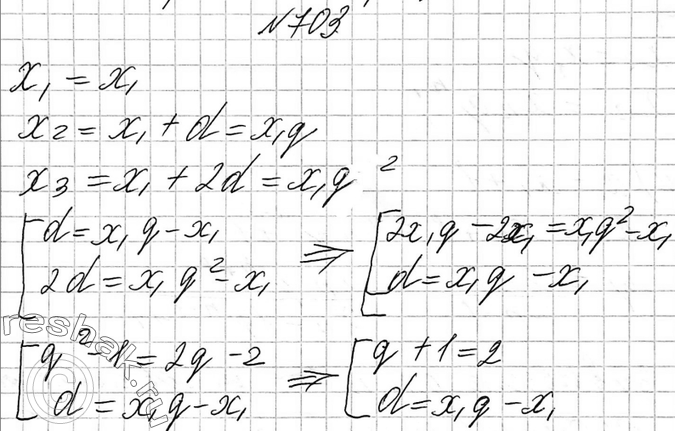 №703
x₁ = x₁
x₂ = x₁ + d = x₁q
x₃ = x₁ + 2d = x₁q²
[ d = x₁q - x₁ ⇒ [ 2x₁q - 2x₁ = x₁q² - x₁
2d = x₁q² - x₁ d = x₁q - x₁
[ q² - 1 = 2q - 2 ⇒ [ q + 1 = 2
d = x₁q - x₁ d = x₁q - x₁
reshak.ru